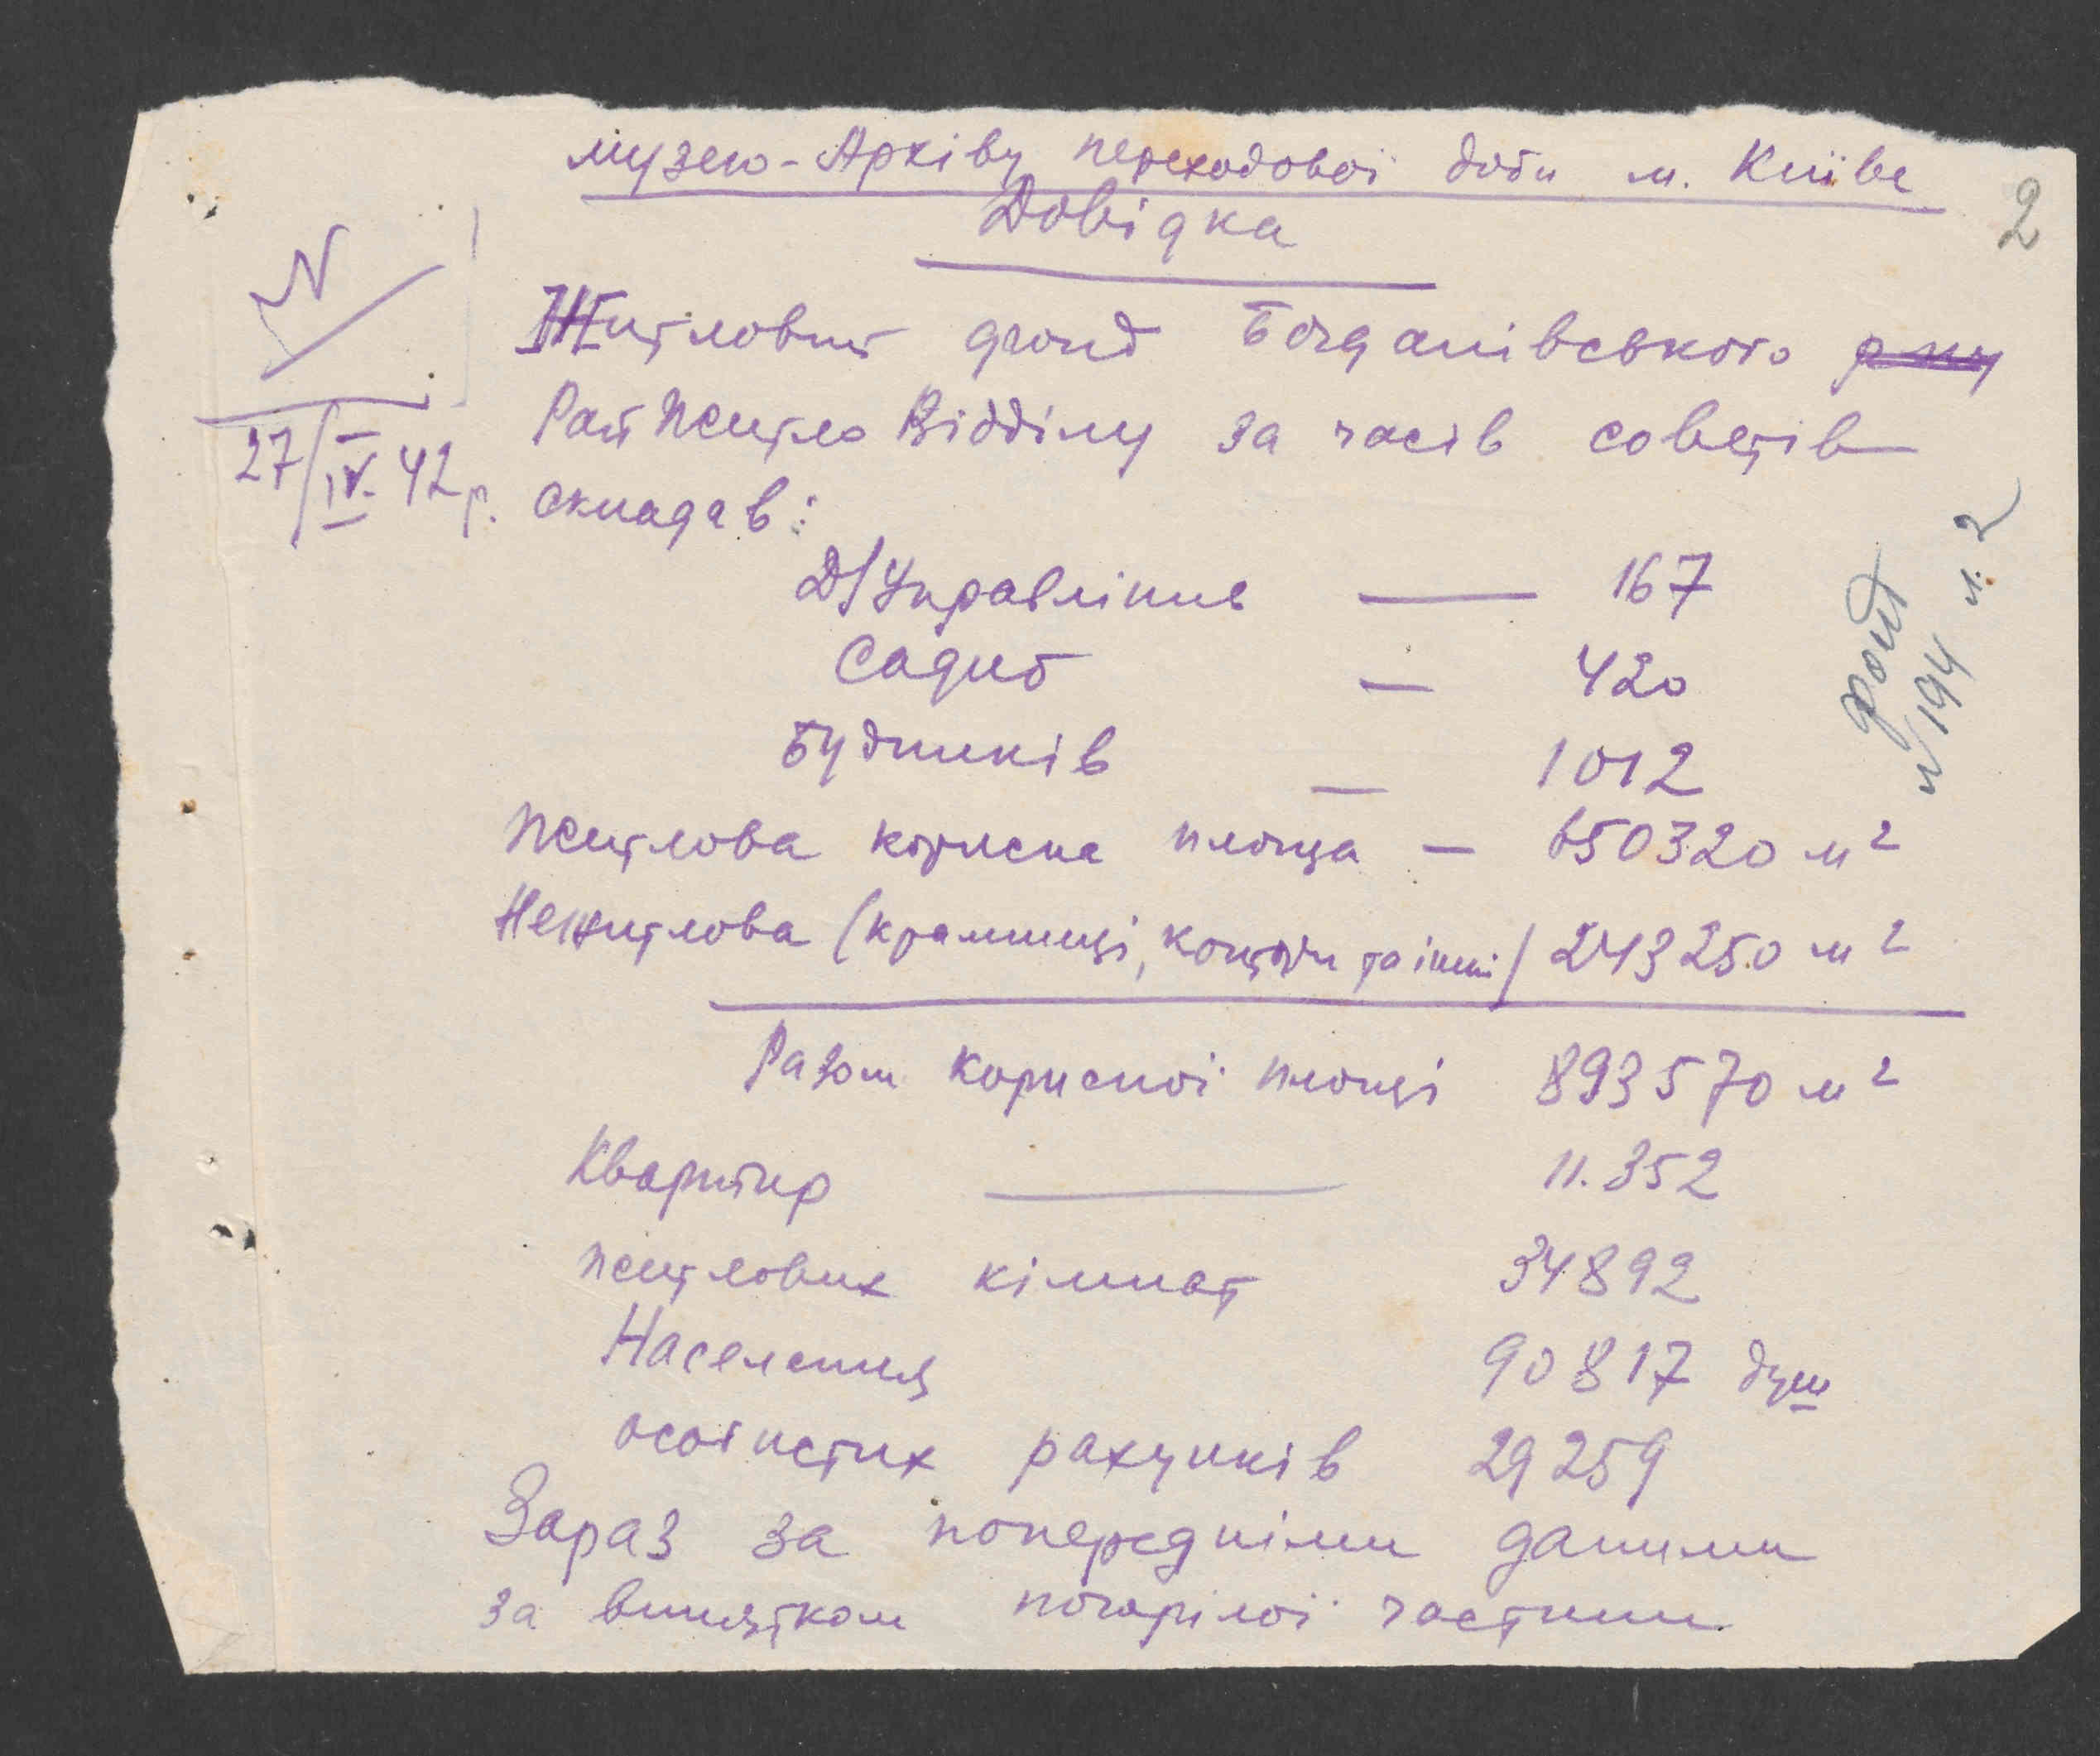 музею-Архіву переходової доби м. Київа
2
Довідка
N
27/IV. 42 р.
Житловий фонд Богданівського
РайЖитло Відділу за часів совєтів
складав:
Д/Управліннів — 167
Садиб — 420
Будинків — 1012
житлова корисна площа — 650320 м²
Нежитлова (крамниці, контори та інші) 243250 м²
Разом корисної площі 893570 м²
Квартир — 11.352
житлових кімнат 34892
Населення 90817 душ
особистих рахунків 29259
Зараз за попередніми даними
за винятком погорілої частини
фонд
N 194 л. 2